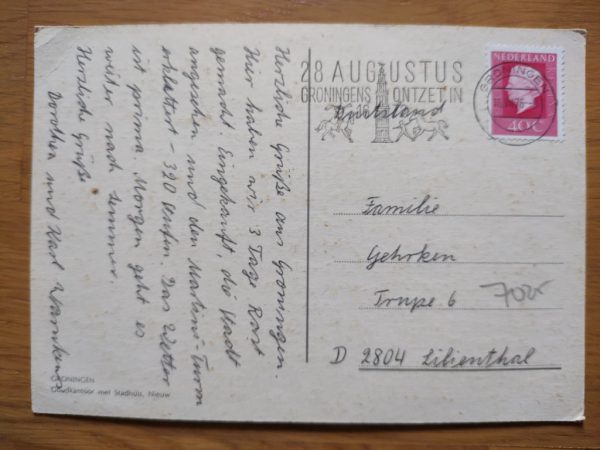 Herzliche Grüße aus Groningen.
Hier haben wir 3 Tage Rast
gemacht. Eingekauft, die Stadt
angesehen und den Martini-Turm
erklettert - 320 Stufen. Das Wetter
ist prima. Morgen geht es
weiter nach
Herzliche Grüße
Dorothea und Karl
GRONINGEN
Goudkantoor met Stadhuis, Nieuw
28 AUGUSTUS
GRONINGENS ONTZET IN
Deutschland
GRONINGEN
NEDERLAND
40c
Familie
Gehrken
Trupe 6
D 2804 Lilienthal